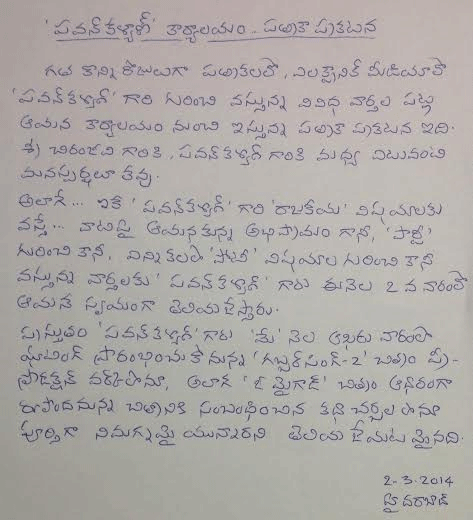 'పవన్ కళ్యాణ్' కార్యాలయం.. పత్రికా ప్రకటన
గత కొన్ని రోజులుగా పత్రికలలో, ఎలక్ట్రానిక్ మీడియాలో
'పవన్ కళ్యాణ్' గారి గురించి వస్తున్న వివిధ వార్తల పట్ల
ఆయన కార్యాలయం నుంచి ఇస్తున్న పత్రికా ప్రకటన ఇది.
శ్రీ చిరంజీవి గారికి, పవన్ కళ్యాణ్ గారికి మధ్య ఎటువంటి
మనస్పర్థలూ లేవు.
అలాగే... ఇక 'పవన్ కళ్యాణ్' గారి 'రాజకీయ' విషయాలకు
వస్తే... వాటిపై ఆయనకున్న అభిప్రాయం గానీ, 'పార్టీ'
గురించి కానీ, ఎన్నికలలో 'పోటీ' విషయాల గురించి కానీ
వస్తున్న వార్తలకు 'పవన్ కళ్యాణ్' గారు ఈనెల 2 వ వారంలో
ఆయనే స్వయంగా తెలియజేస్తారు.
ప్రస్తుతం 'పవన్ కళ్యాణ్' గారు 'మే' నెల ఆఖరు వారంలో
షూటింగ్ ప్రారంభించుకోనున్న 'గబ్బర్ సింగ్-2' చిత్రం ప్రీ-
ప్రొడక్షన్ వర్క్ లోనూ, అలాగే 'ఓ మైగాడ్' చిత్రం ఆధారంగా
రూపొందనున్న చిత్రానికి సంబంధించిన కథా చర్చల లోనూ
పూర్తిగా నిమగ్నమై యున్నారని తెలియజేయటమైనది.
2-3-2014
హైదరాబాద్